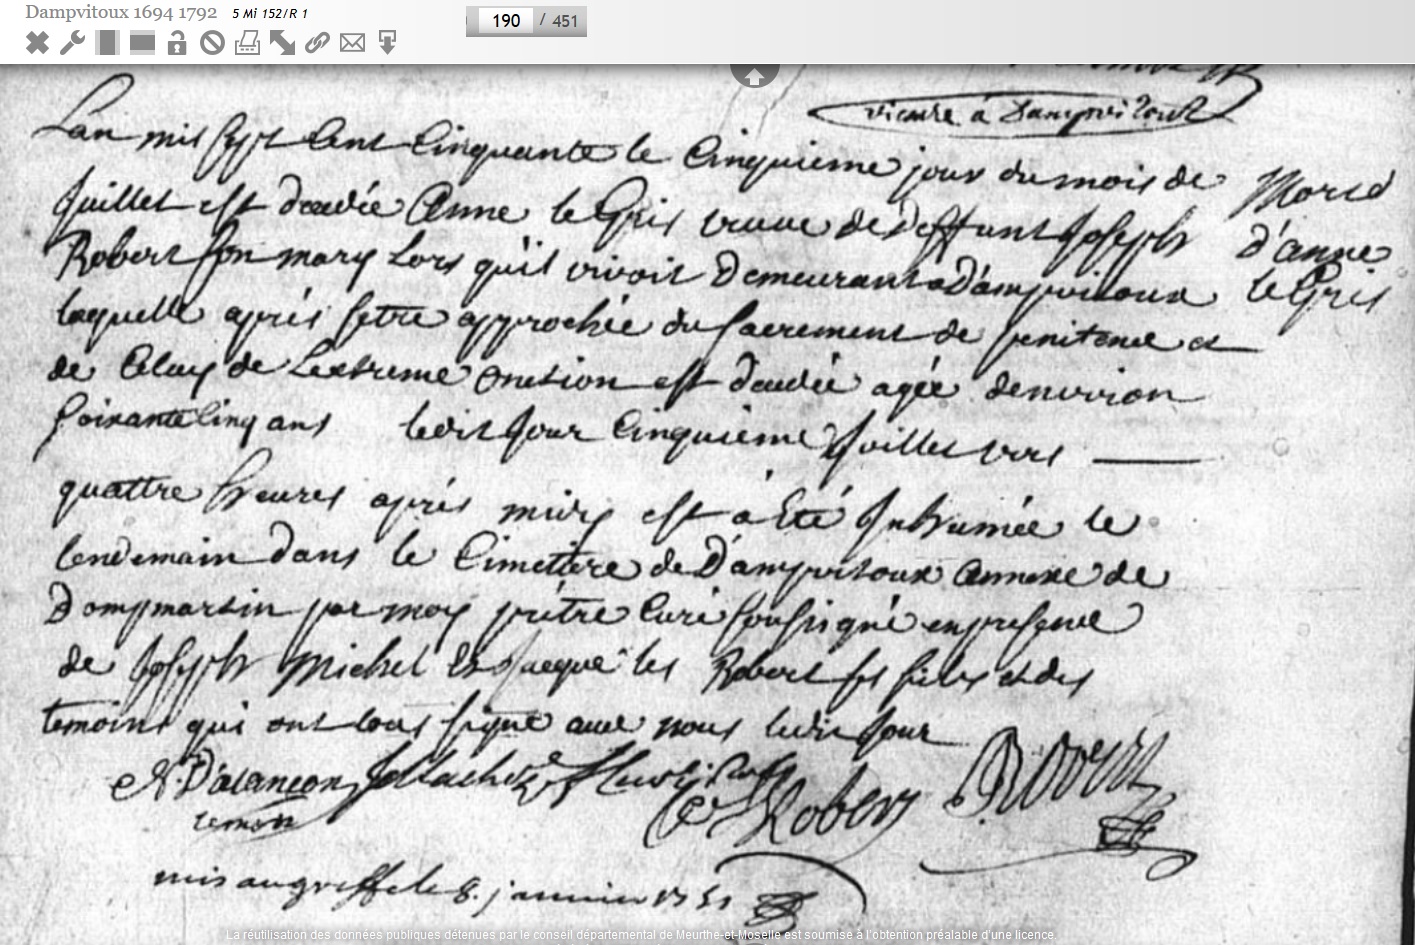 Dampvitoux 1694 1792 5 Mi 152/R 1
190 / 451
vicaire à Dampvitoux
Lan mil sept Cent Cinquante le Cinquieme jour du mois de
Juillet est décédée Anne le Gris veuve de Deffunt Joseph
Robert son mary Lors qu'il vivoit Demeurant a Dampvitoux
laquelle aprés setre approchée du sacrement de penitence et
de Celuy de Lextreme onction est decedée agée denviron
soixante Cinq ans ledit Jour Cinquieme Juillet vers
quattre heures aprés midy est à Eté Inhumée le
lendemain dans le Cimettiere de Dampvitoux annexe de
Dompmartin par moy prétre Curé soussigné en presence
de Joseph Michel et Jacque les Robert ses fils et des
temoins qui ont tous signé avec nous ledit Jour
Mort
d'anne
le Gris
Robert
Robert
temoin
mis au greffe le 8. janvier 1751
La réutilisation des données publiques détenues par le conseil départemental de Meurthe-et-Moselle est soumise à l'obtention préalable d'une licence.